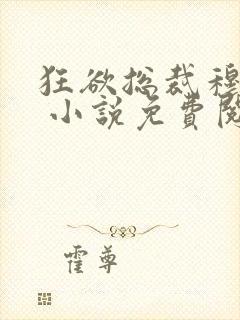 狂欲总裁穆
小說免費閱
霍尊